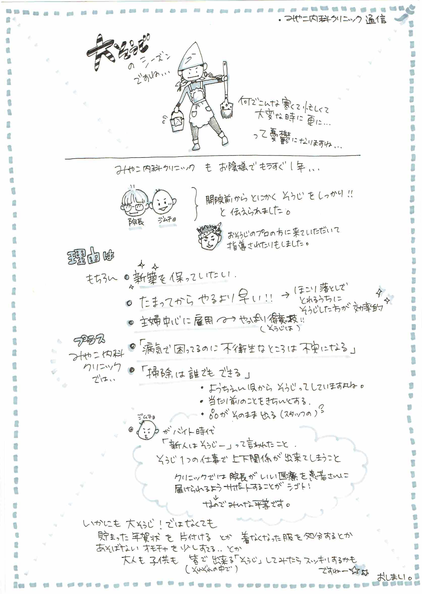 ・みやこ内科クリニック 通信
大そうじ
の シーズン
ですね…
何でこんな寒くて忙しくて
大変な時に更に…
って憂鬱になりますね…
みやこ内科クリニック も お陰様で もうすぐ 1年…
院長
ジムチョ
開院前から とにかく そうじ を しっかり!!
と 伝えられました。
おそうじのプロの方に来ていただいて
指導されたりもしました。
理由は
もちろん
● 新築を保っていたい.
● たまってから やるより 早い!! → ほこり落として
とれるうちに
そうじした方が 効率的
● 主婦中心に雇用 → やっぱり 得意技!!
(そうじは)
プラス
みやこ内科
クリニック
では..
● 「病気で困ってるのに 不衛生なところは 不安になる」
● 「掃除は誰でも できる」
・ようちえん 以から そうじ してしていますよね。
・当たり前のことをきちんとする.
・品がそのまま出る (スタッフの)
ジムチョ
が バイト時代
「新人はそうじー」って言われたこと.
そうじ 1つの仕事で 上下関係が 出来てしまうこと
クリニックでは 院長が いい医療を 患者さんに
届けられるよう サポートすることが シゴト!
なので みんな 平等です。
いかにも 大そうじ! ではなくても
貯まった 年賀状 を 片付ける とか 着なくなった服を処分するとか
あそばない オモチャを 少し すてる.. とか
大人も 子供も 皆で 出来る「そうじ」してみたら スッキリするかも
ですねー☆☆
おしまい。